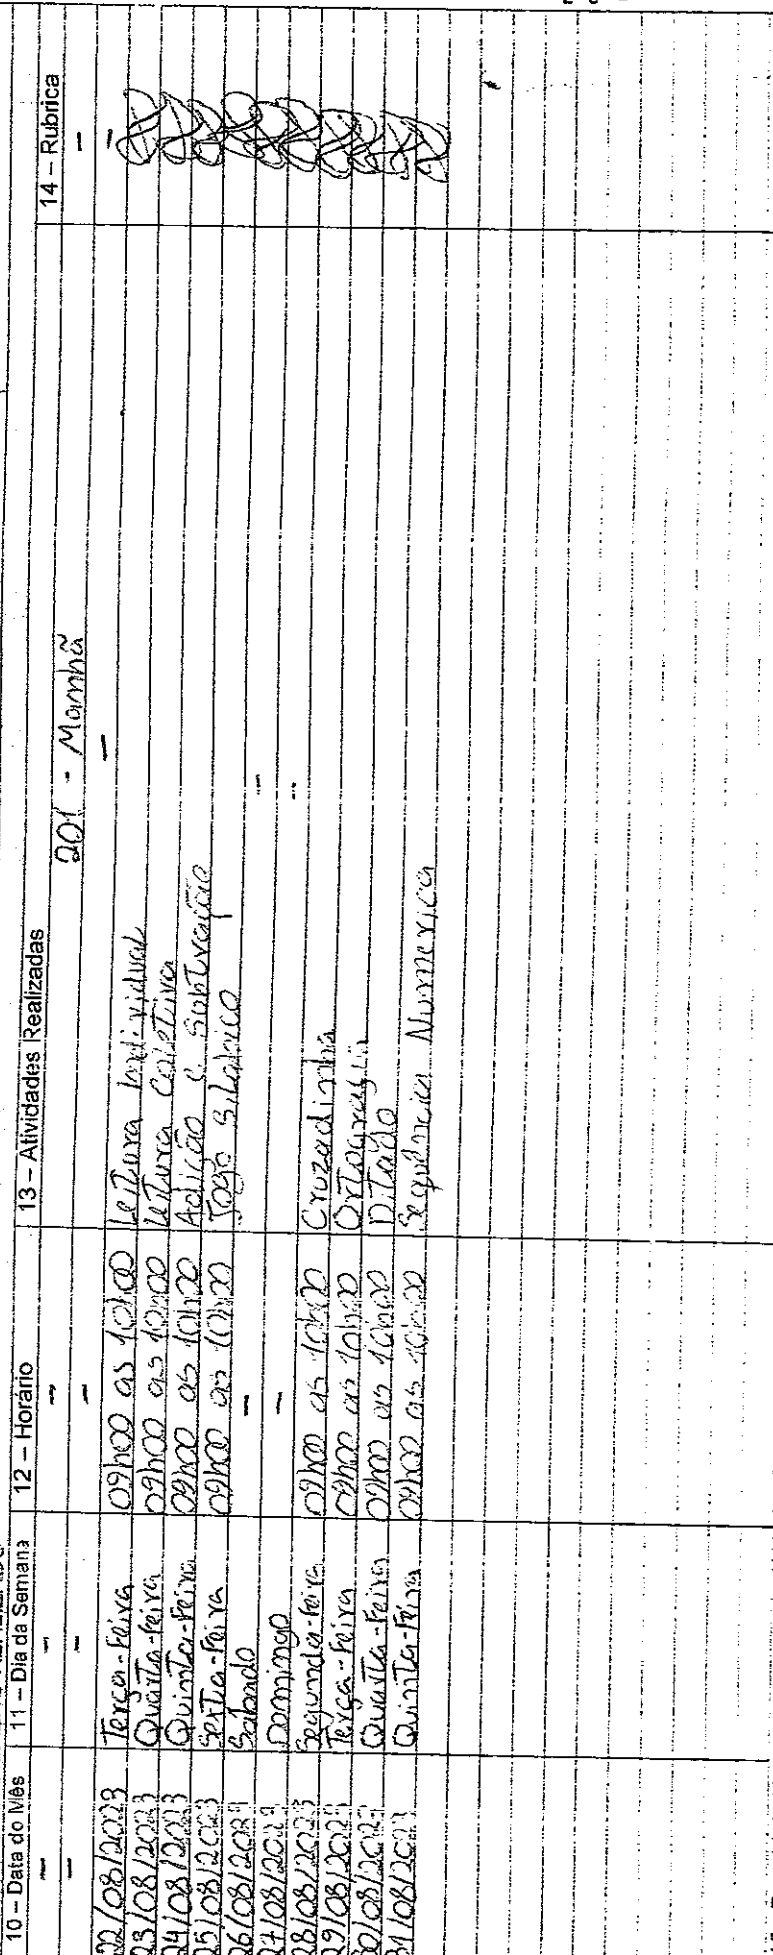 10 – Data do Mês 11 – Dia da Semana 12 – Horário 13 – Atividades Realizadas 14 – Rubrica
– – – 201 - Manhã –
– – – – –
22/08/2023 Terça-Feira 09h00 as 10h00 Leitura Individual
23/08/2023 Quarta-Feira 09h00 as 10h00 Leitura Coletiva
24/08/2023 Quinta-Feira 09h00 as 10h00 Adição e Subtração
25/08/2023 Sexta-Feira 09h00 as 10h00 Jogo Silabico
26/08/2023 Sabado – –
27/08/2023 Domingo – –
28/08/2023 Segunda-Feira 09h00 as 10h00 Cruzadinha
29/08/2023 Terça-Feira 09h00 as 10h00 Ortografia
30/08/2023 Quarta-Feira 09h00 as 10h00 Ditado
31/08/2023 Quinta-Feira 09h00 as 10h00 Sequência Numerica